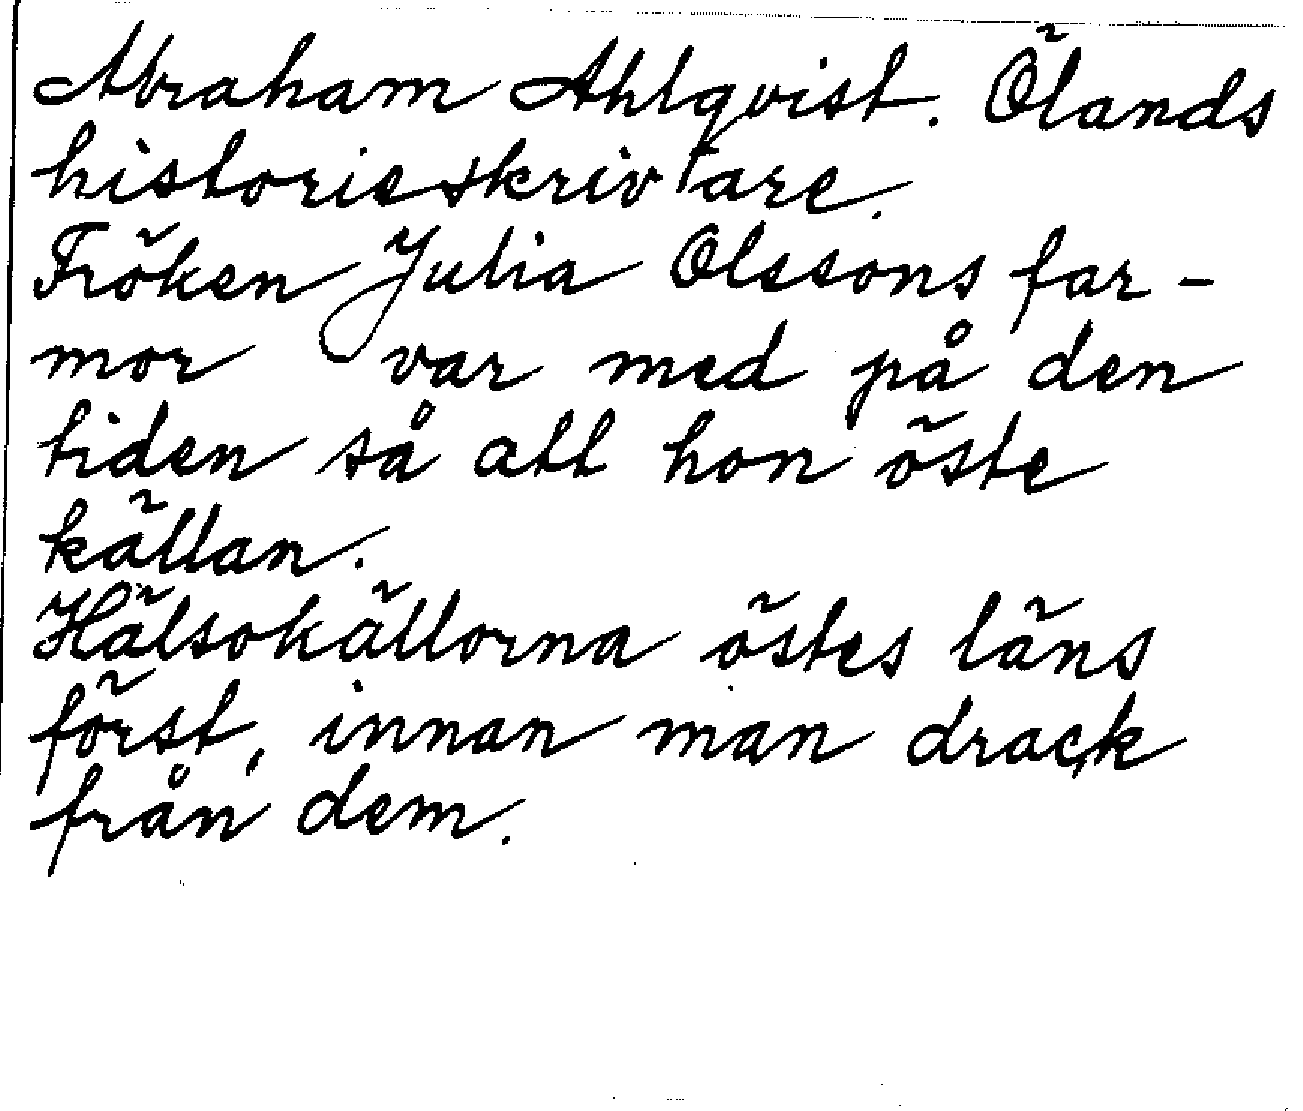 Abraham Ahlqvist. Ölands
historieskrivare.
Fröken Julia Olssons far-
mor var med på den
tiden så att hon öste
källan.
Hälsokällorna östes läns
först, innan man drack
från dem.